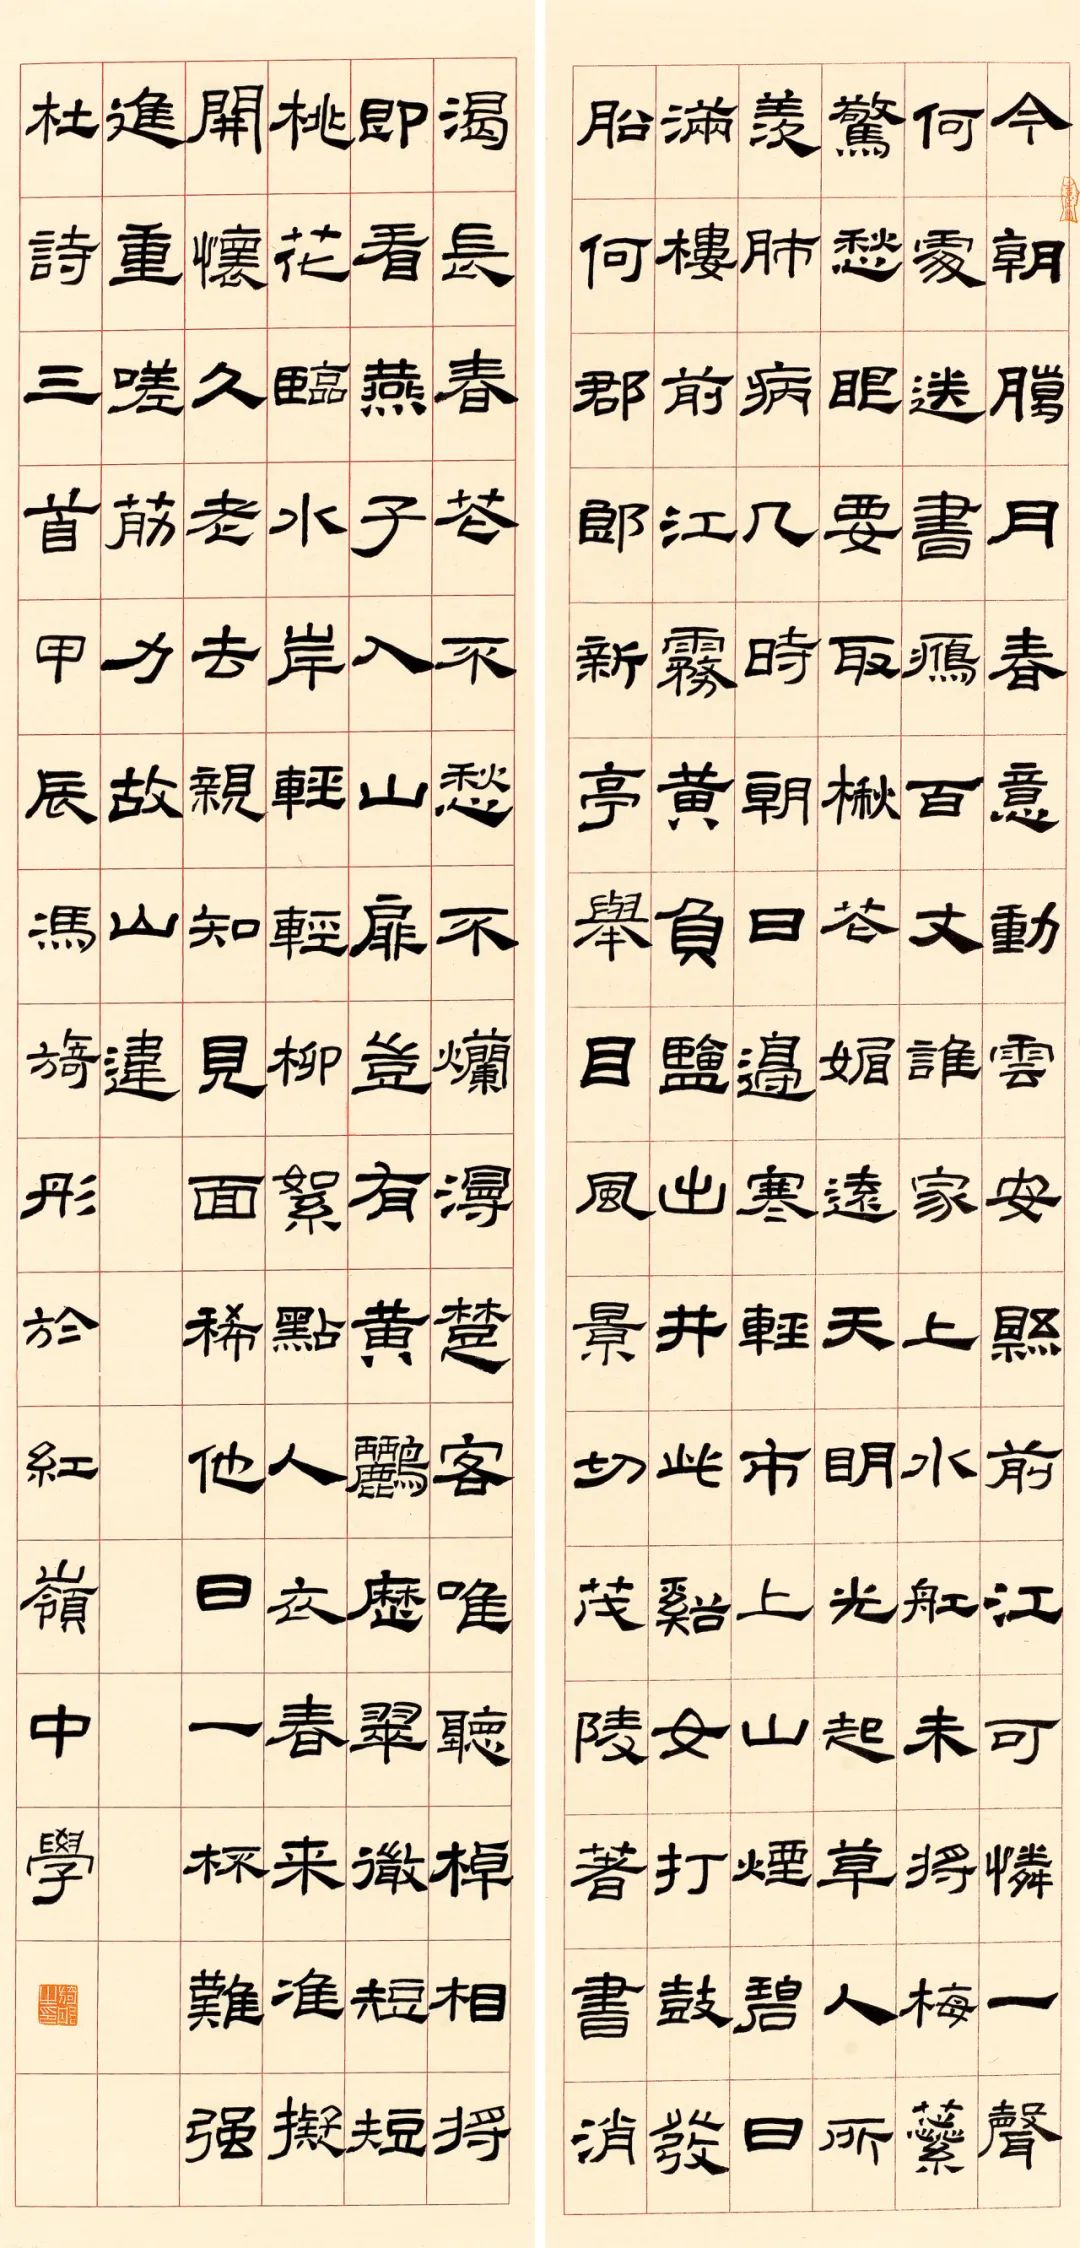 今朝臈月春意動雲安縣前江可憐一聲
何處送書鴈百丈誰家上水舩未將梅蘂
驚愁眼要取楸花媚遠天明光起草人所
羨肺病几時朝日邊寒輕市上山煙碧日
滿樓前江霧黃負鹽出井此谿女打鼓發
船何郡郎新亭舉目風景切茂陵著書消
渴長春花不愁不爛漫楚客唯聽棹相將
即看燕子入山扉豈有黃鸝歷翠微短短
桃花臨水岸輕輕柳絮點人衣春来准擬
開懷久老去親知見面稀他日一杯難强
進重嗟筋力故山違
杜詩三首甲辰馮旖彤於紅嶺中學